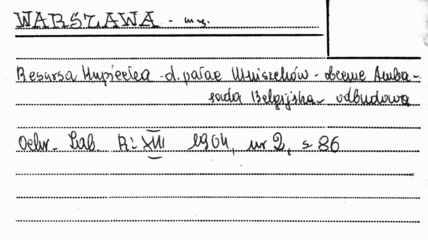 WARSZAWA - m.
Resursa Kupiecka - d. pałac Mniszchów - obecnie Amba-
sada Belgijska - odbudowa
Ochr. Zab. R: XVII 1964, nr 2, s 86